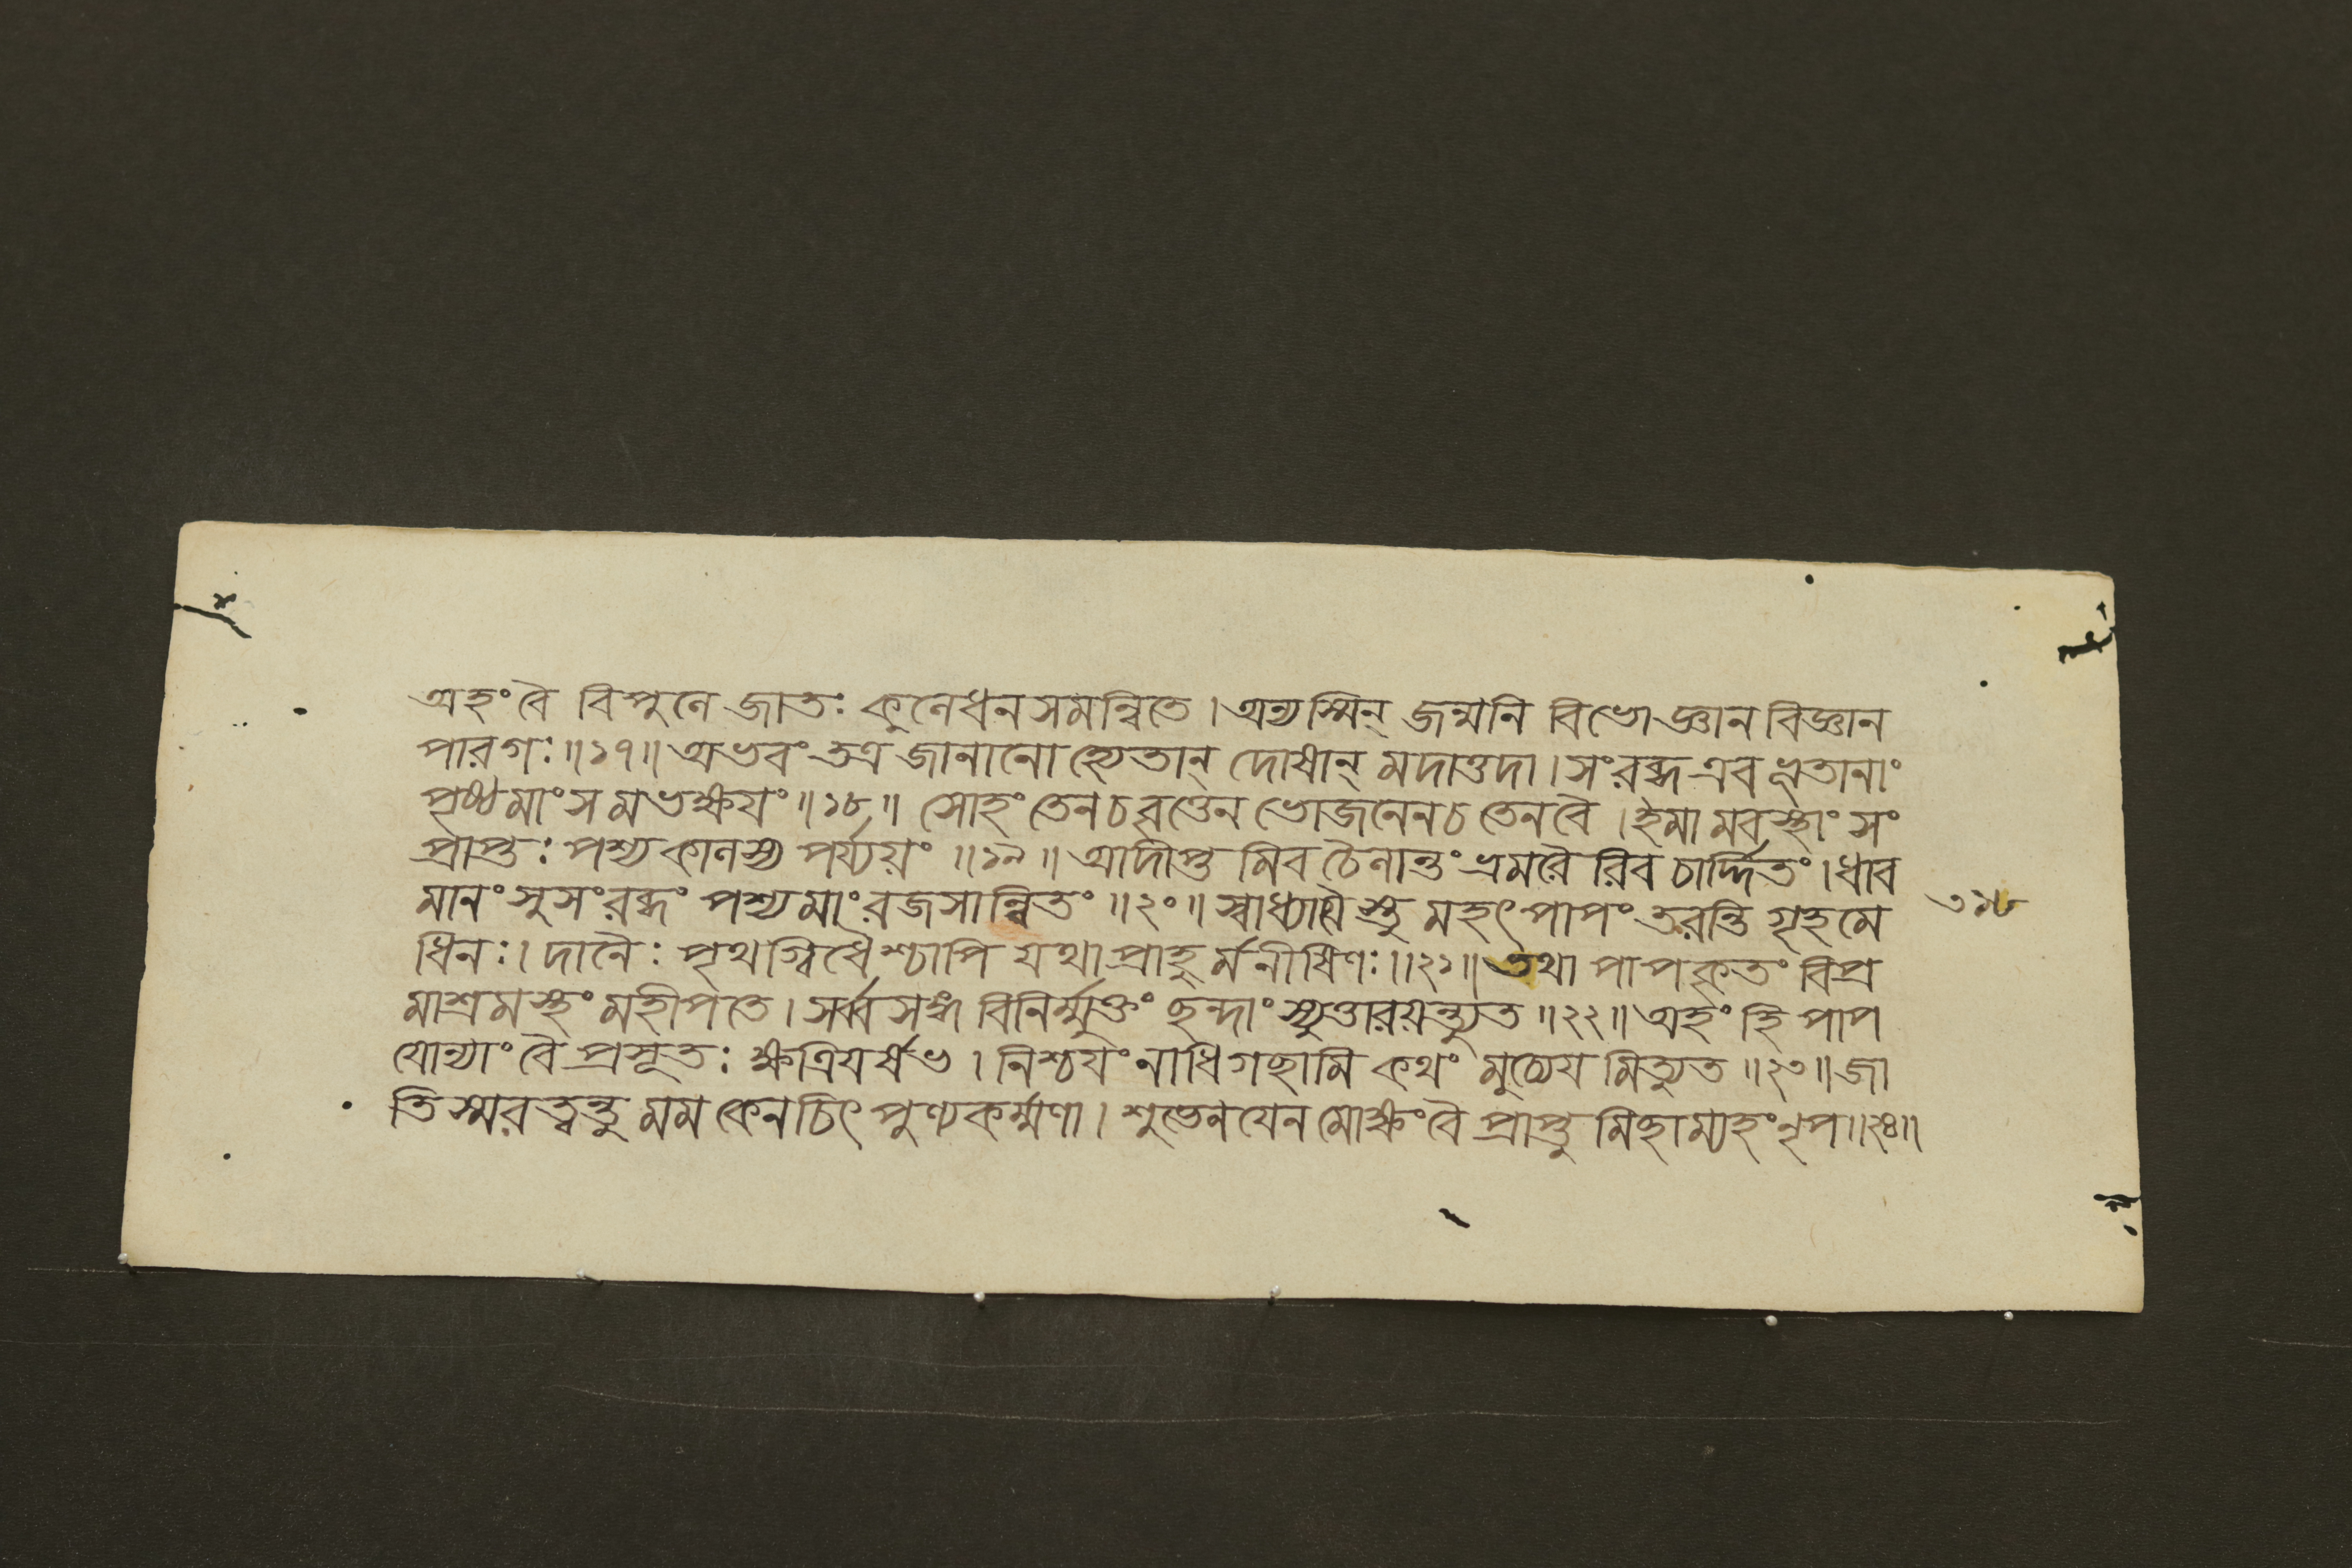 অহং বৈ বিপুলে জাতঃ কুলেধনসমন্বিতে। অন্যস্মিন্ জন্মনি বিভোজ্ঞান বিজ্ঞান
পারগঃ॥১৭॥ অভবং তত্র জানানো হ্যেতান্ দোষান্ মদাত্তদা। সংরব্ধ এব ভূতানাং
পৃষ্ঠমাংসমভক্ষয়ং॥১৮॥ সোহং তেনচবৃত্তেন ভোজনেনচ তেনবৈ। ইমামবস্থাং সং
প্রাপ্তঃ পশ্যকালস্য পর্য্যয়ং॥১৯॥ আদীপ্তমিব চৈলান্তং ভ্রমরৈরিব চার্দ্দিতং। ধাব
মানং সুসংরব্ধং পশ্যমাং রজসান্বিতং॥২০॥ স্বাধ্যায়ৈস্তু মহৎপাপং তরন্তি গৃহমে
ধিনঃ। দানৈঃ পৃথগ্বিধৈশ্চাপি যথা প্রাহুর্মনীষিণঃ॥২১॥ তথা পাপকৃতং বিপ্র
মাশ্রমস্থং মহীপতে। সর্ব্বসঙ্গ বিনির্ম্মুক্তং ছন্দাংস্যুত্তারয়ন্ত্যুত॥২২॥ অহং হি পাপ
যোন্যাং বৈ প্রসূতঃ ক্ষত্রিয়র্ষভ। নিশ্চয়ং নাধিগছামি কথং মুচ্যেয়মিত্যুত॥২৩॥ জা
তিস্মরত্বন্তু মম কেনচিৎ পুণ্যকর্ম্মণা। শুভেনযেন মোক্ষং বৈ প্রাপ্তুমিছাম্যহং নৃপ॥২৪॥
৩১৮